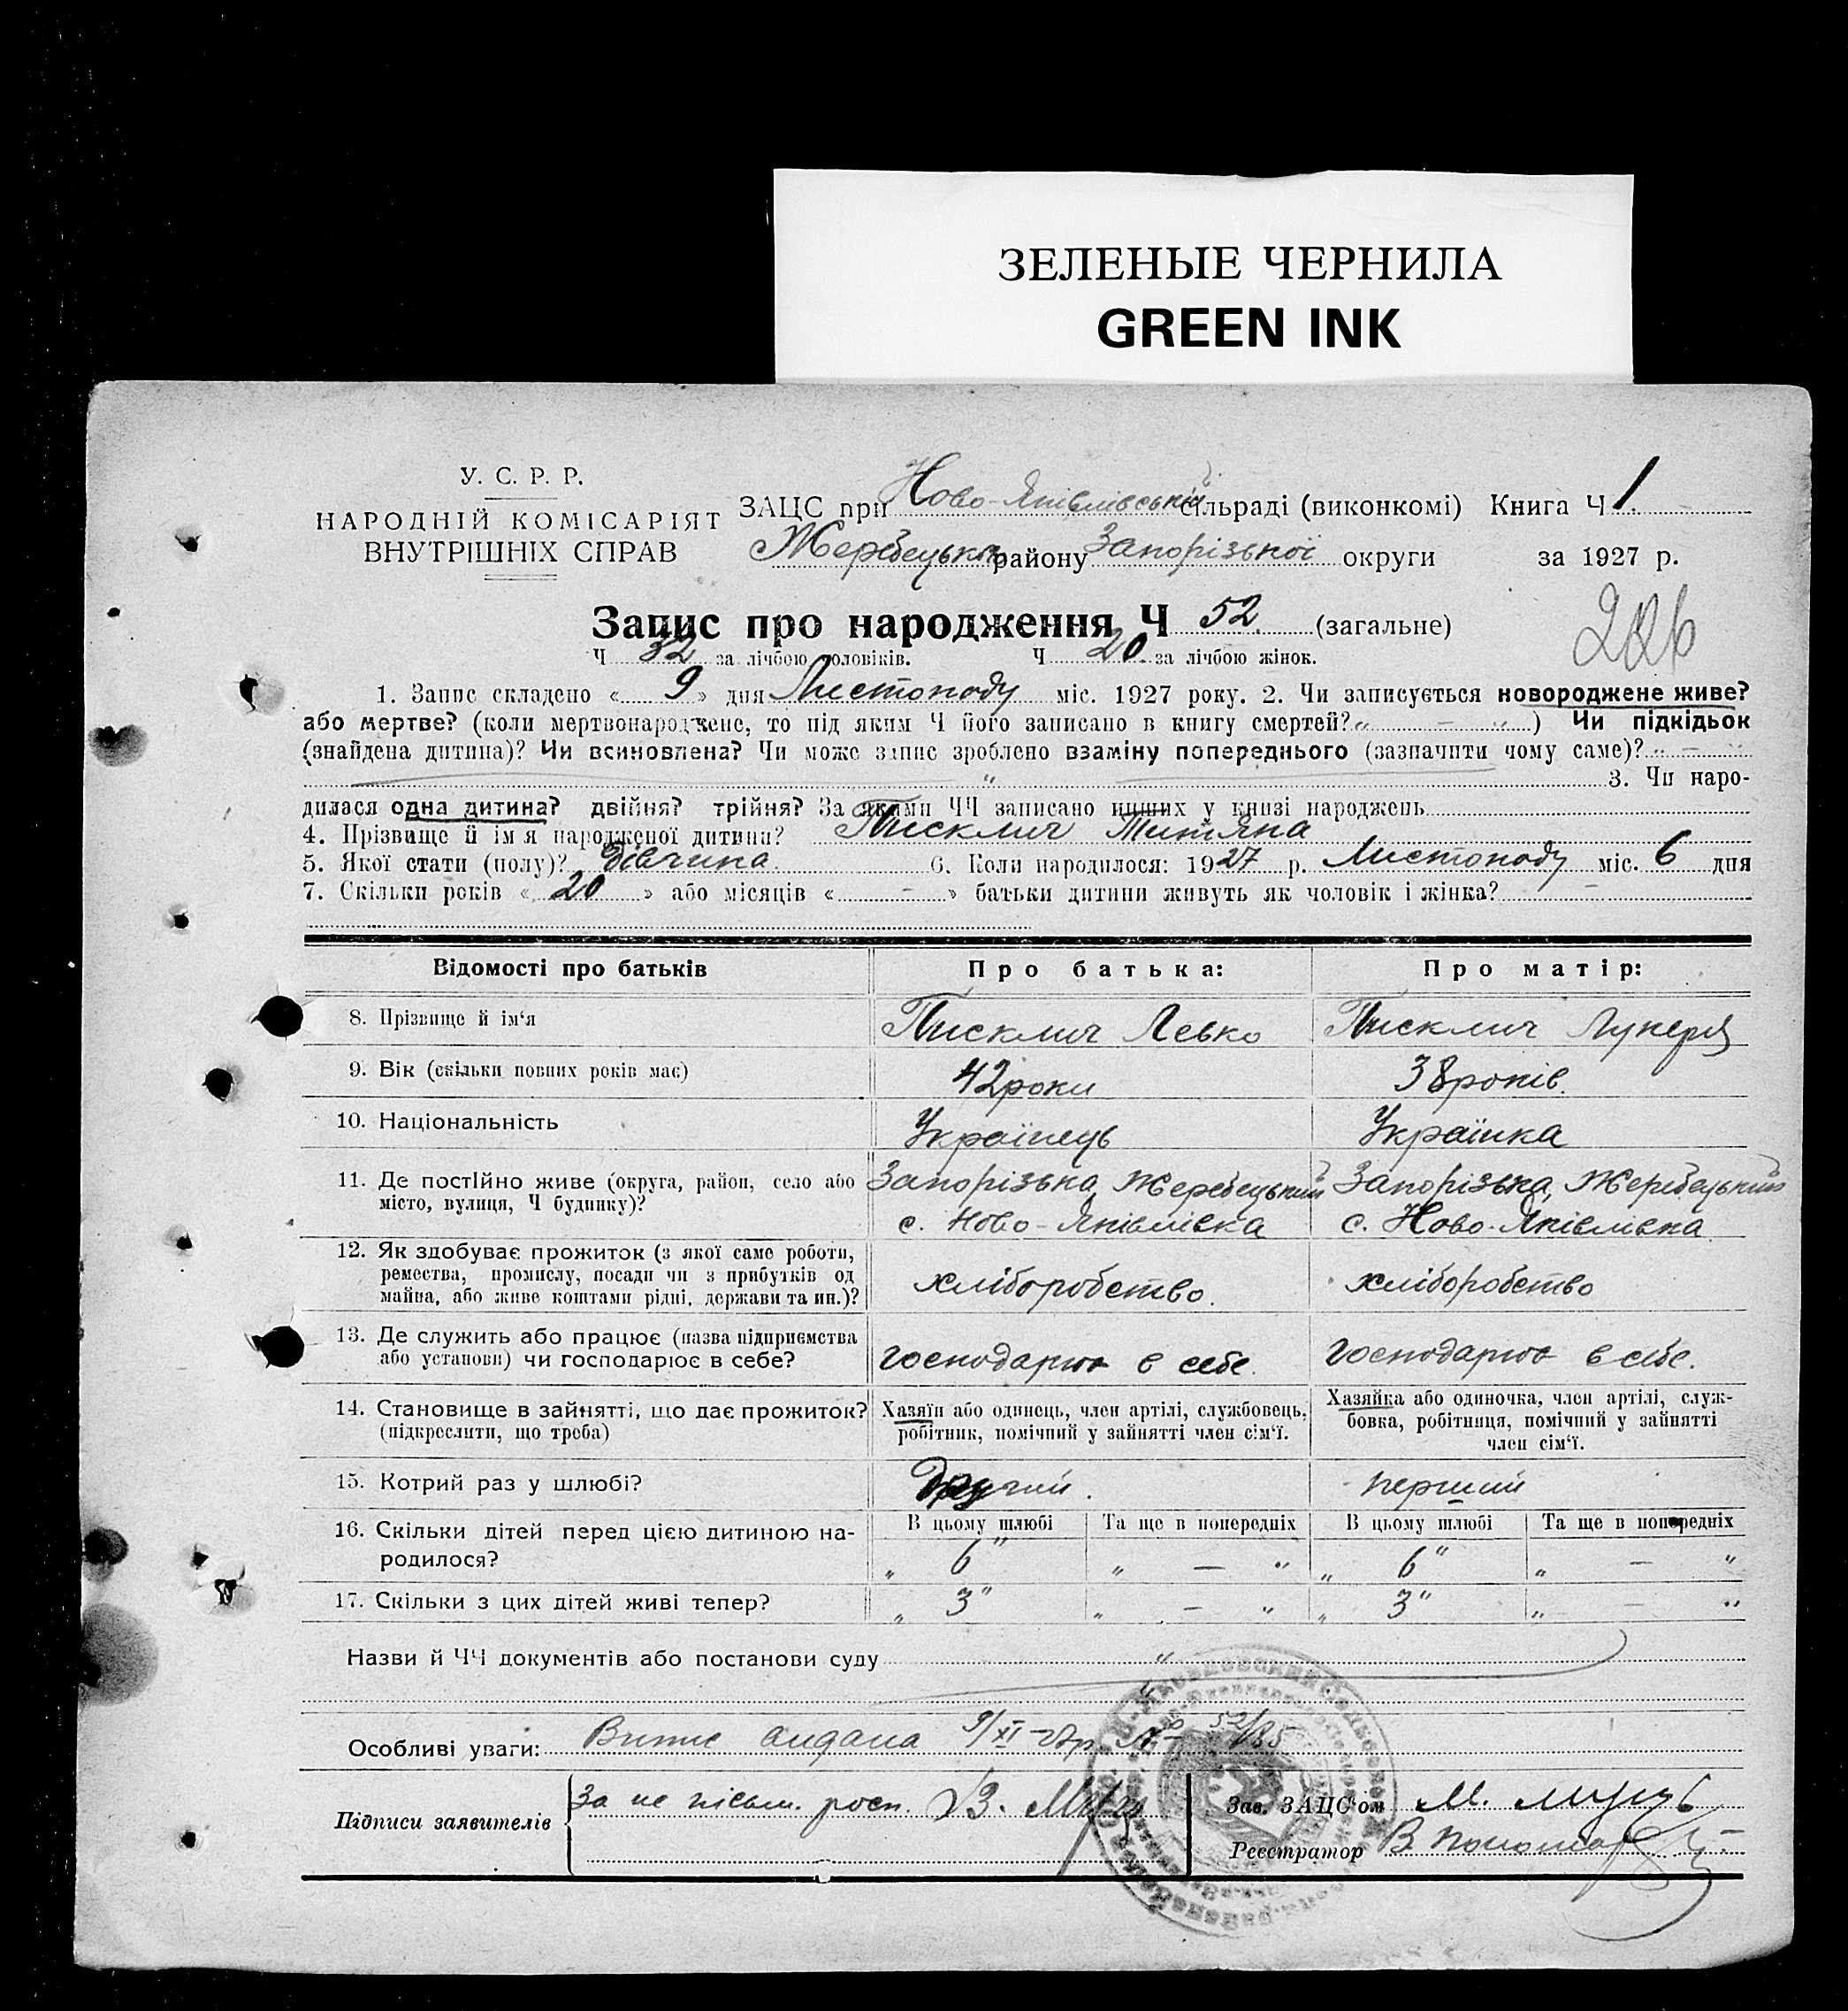 ЗЕЛЕНЫЕ ЧЕРНИЛА
GREEN INK
У. С. Р. Р.
НАРОДНІЙ КОМІСАРІЯТ
ВНУТРІШНІХ СПРАВ
ЗАЦС при Ново-Яківлівській сільраді (виконкомі) Книга Ч 1.
Жеребецьког району Запорізької округи за 1927 р.
Запис про народження Ч 52. (загальне)
226
Ч 32 за лічбою чоловіків. Ч 20. за лічбою жінок.
1. Запис складено « 9 » дня Листопаду міс. 1927 року. 2. Чи записується новороджене живе?
або мертве? (коли мертвонароджене, то під яким Ч його записано в книгу смертей? „ — „ ) Чи підкідьок
(знайдена дитина)? Чи всиновлена? Чи може запис зроблено взаміну попереднього (зазначити чому саме)? „ — „
„ 3. Чи наро-
дилася одна дитина? двійня? трійня? За якими ЧЧ записано инших у книзі народжень
4. Прізвище й ім'я народженої дитини? Писклич Титяна
5. Якої стати (полу)? Дівчина. 6. Коли народилося: 1927 р. Листопаду міс. 6 дня
7. Скільки років « 20 » або місяців « — » батьки дитини живуть як чоловік і жінка? —
Відомості про батьків Про батька: Про матір:
8. Прізвище й ім'я Писклич Левко Писклич Лукеря
9. Вік (скільки повних років має) 42 роки 38 років.
10. Національність Українець Українка
11. Де постійно живе (округа, район, село або місто, вулиця, Ч будинку)? Запорізька Жеребецький Запорізька, Жеребецький
с. Ново-Яківлівка с. Ново-Яківлівка
12. Як здобуває прожиток (з якої саме роботи,
ремества, промислу, посади чи з прибутків од хліборобство. хліборобство
майна, або живе коштами рідні, держави та ин.)?
13. Де служить або працює (назва підприємства
або установи) чи господарює в себе? господарює в себе. господарює в себе.
14. Становище в зайнятті, що дає прожиток? Хазяїн або одинець, член артілі, службовець, Хазяйка або одиночка, член артілі, служ-
(підкреслити, що треба) робітник, помічний у зайнятті член сім'ї. бовка, робітниця, помічний у зайнятті
член сім'ї.
15. Котрий раз у шлюбі? Другий. перший
16. Скільки дітей перед цією дитиною на- В цьому шлюбі Та ще в попередніх В цьому шлюбі Та ще в попередніх
родилося? „ 6 „ „ — „ „ 6 „ „ — „
17. Скільки з цих дітей живі тепер? „ 3 „ „ — „ „ 3 „ „ — „
Назви й ЧЧ документів або постанови суду „
Особливі уваги: Випис видана 9/XI-27р. № 52/
Підписи заявителів За не письм. росп. В.
Зав. ЗАЦС'ом М.
Реєстратор В